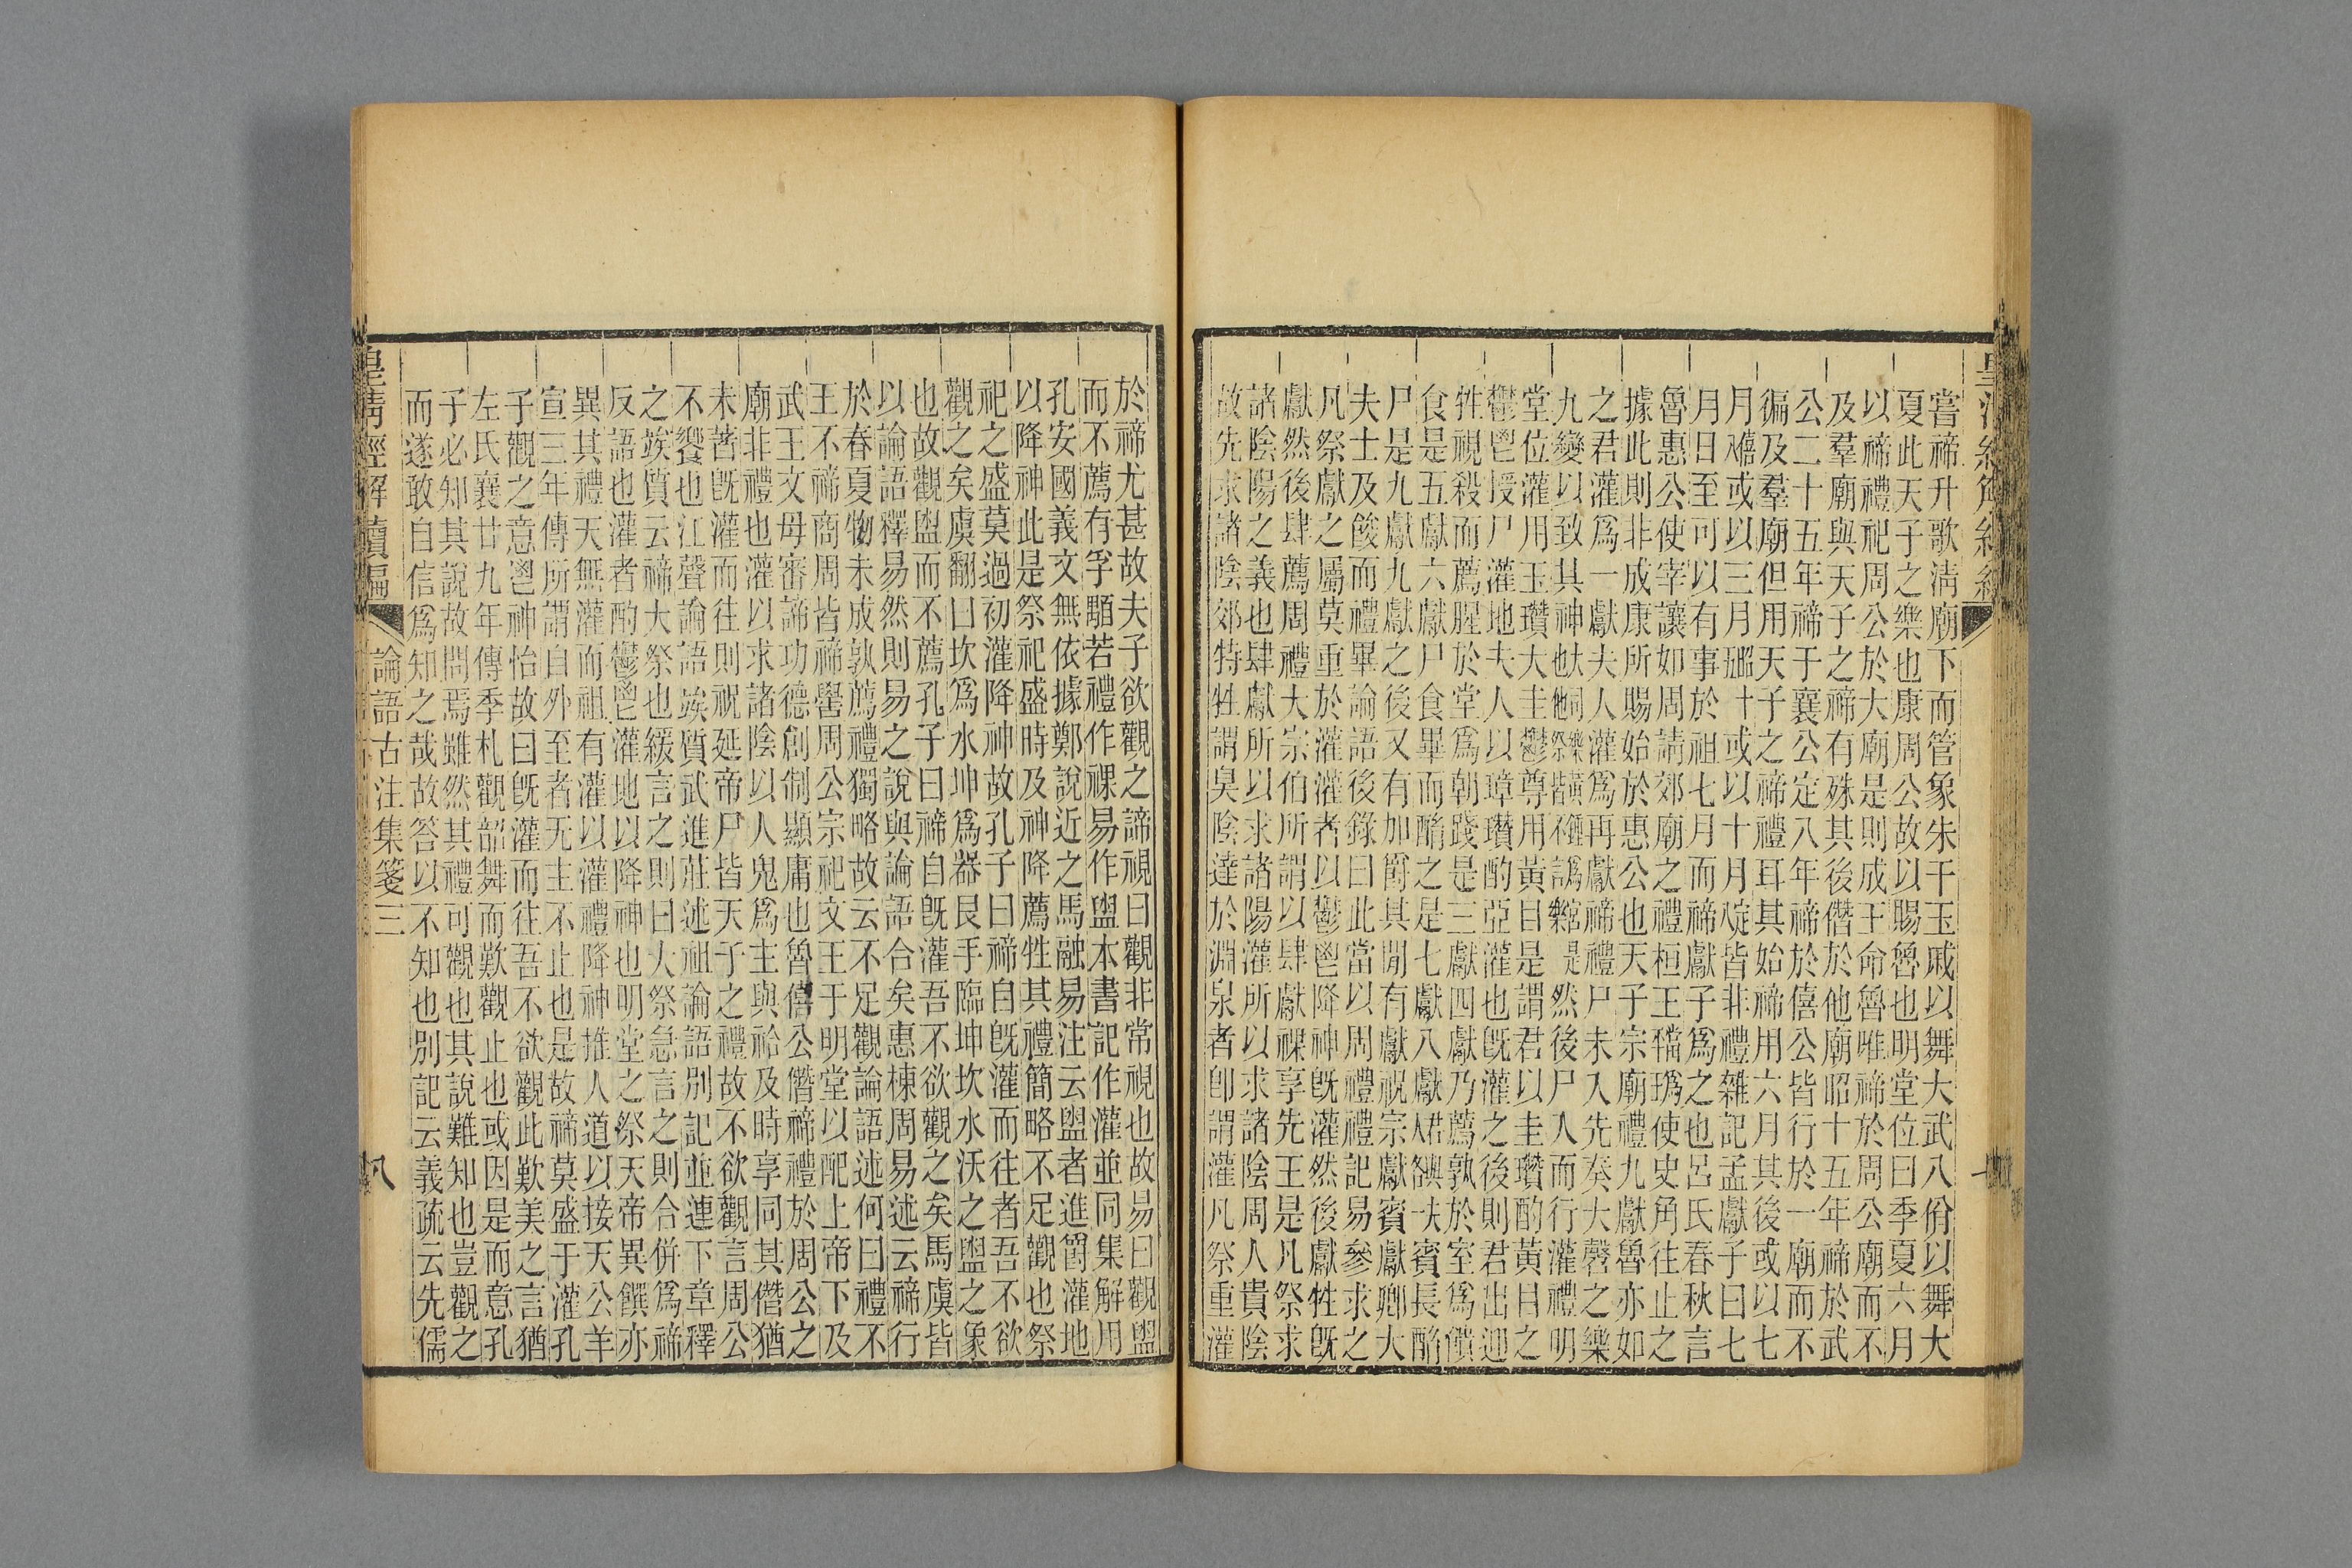 嘗禘升歌淸廟下而管象朱干玉戚以舞大武八佾以舞大
夏此天子之樂也康周公故以賜魯也明堂位曰季夏六月
以禘禮祀周公於大廟是則成王命魯唯禘於周公廟而不
及羣廟與天子之禘有殊其後僭於他廟昭十五年禘於武
公二十五年禘于襄公定八年禘於僖公皆行於一廟而不
徧及羣廟但用天子之禘禮耳其始禘用六月其後或以七
月或以三月十或以十月皆非禮雜記孟獻子曰七
月日至可以有事於祖七月而禘獻子爲之也呂氏春秋言
魯惠公使宰讓如周請郊廟之禮桓王使史角往止之
據此則非成康所賜始於惠公也天子宗廟禮九獻魯亦如
之君灌爲一獻夫人灌爲再獻禘禮尸未入先奏大磬之樂
九變以致其神然後尸入而行灌禮明
堂位灌用玉瓚大圭鬱尊用黃目是謂君以圭瓚酌黃目之
鬱鬯授尸灌地夫人以璋瓚酌亞灌也旣灌之後則君出迎
牲視殺而薦腥於堂爲朝踐是三獻四獻乃薦孰於室爲饋
食是五獻六獻尸食畢而酳之是七獻八獻賓長酳
尸是九獻九獻之後又有加爵其閒有獻祝宗獻賓獻卿大
夫士及餕而禮畢論語後錄曰此當以周禮禮記易參求之
凡祭獻之屬莫重於灌灌者以鬱鬯降神旣灌然後獻牲旣
獻然後肆薦周禮大宗伯所謂以肆獻祼享先王是凡祭求
諸陰陽之義也肆獻所以求諸陽灌所以求諸陰周人貴陰
故先求諸陰郊特牲謂臭陰達於淵泉者卽謂灌凡祭重灌
於禘尤甚故夫子欲觀之諦視曰觀非常視也故易曰觀盥
而不薦有孚顒若禮作祼易作盥本書記作灌並同集解用
孔安國義文無依據鄭說近之馬融易注云盥者進爵灌地
以降神此是祭祀盛時及神降薦牲其禮簡略不足觀也祭
祀之盛莫過初灌降神故孔子曰禘自旣灌而往者吾不欲
觀之矣虞翻曰坎爲水坤爲器艮手臨坤坎水沃之盥之象
也故觀盥而不薦孔子曰禘自旣灌吾不欲觀之矣馬虞皆
以論語釋易然則易之說與論語合矣惠棟周易述云禘行
於春夏物未成孰薦禮獨略故云不足觀論語述何曰禮不
王不禘商周皆禘嚳周公宗祀文王于明堂以配上帝下及
武王文母審諦功德創制顯庸也魯僖公僭禘禮於周公之
廟非禮也灌以求諸陰以人鬼爲主與祫及時享同其僭猶
未著旣灌而往則祝延帝尸皆天子之禮故不欲觀言周公
不饗也江聲論語竢質武進莊述祖論語別記並連下章釋
之竢質云禘大祭也緩言之則曰大祭急言之則合併爲禘
反語也灌者酌鬱鬯灌地以降神也明堂之祭天帝異饌亦
異其禮天無灌而祖有灌以灌禮降神推人道以接天公羊
宣三年傳所謂自外至者无主不止也是故禘莫盛于灌孔
子觀之意鬯神怡故曰旣灌而往吾不欲觀此歎美之言猶
左氏襄廿九年傳季札觀韶舞而歎觀止也或因是而意孔
子必知其說故問焉雖然其禮可觀也其說難知也豈觀之
而遂敢自信爲知之哉故答以不知也別記云義疏云先儒
皇淸經解續編
論語古注集箋三
八